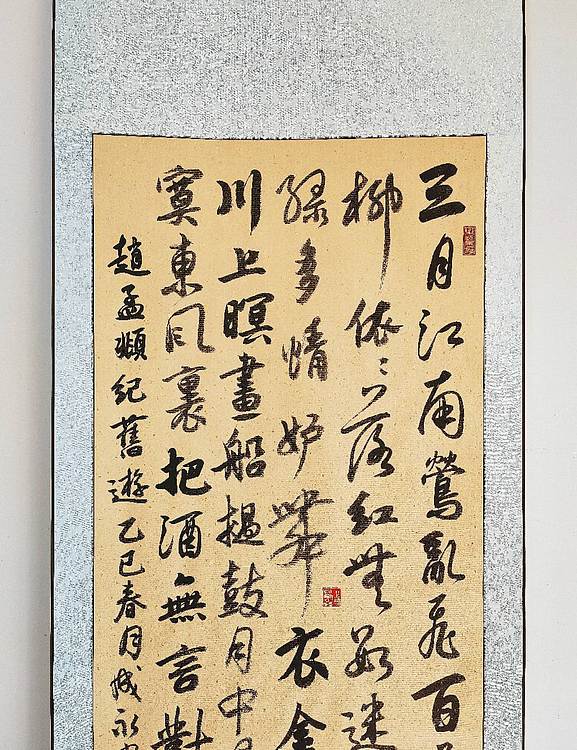 三月江南鶯亂飛百
柳依〻落紅無數迷
綠多情妒舞衣金
川上暝畫船撾鼓月中
寞東風裏把酒無言對
趙孟頫紀舊遊乙巳春月